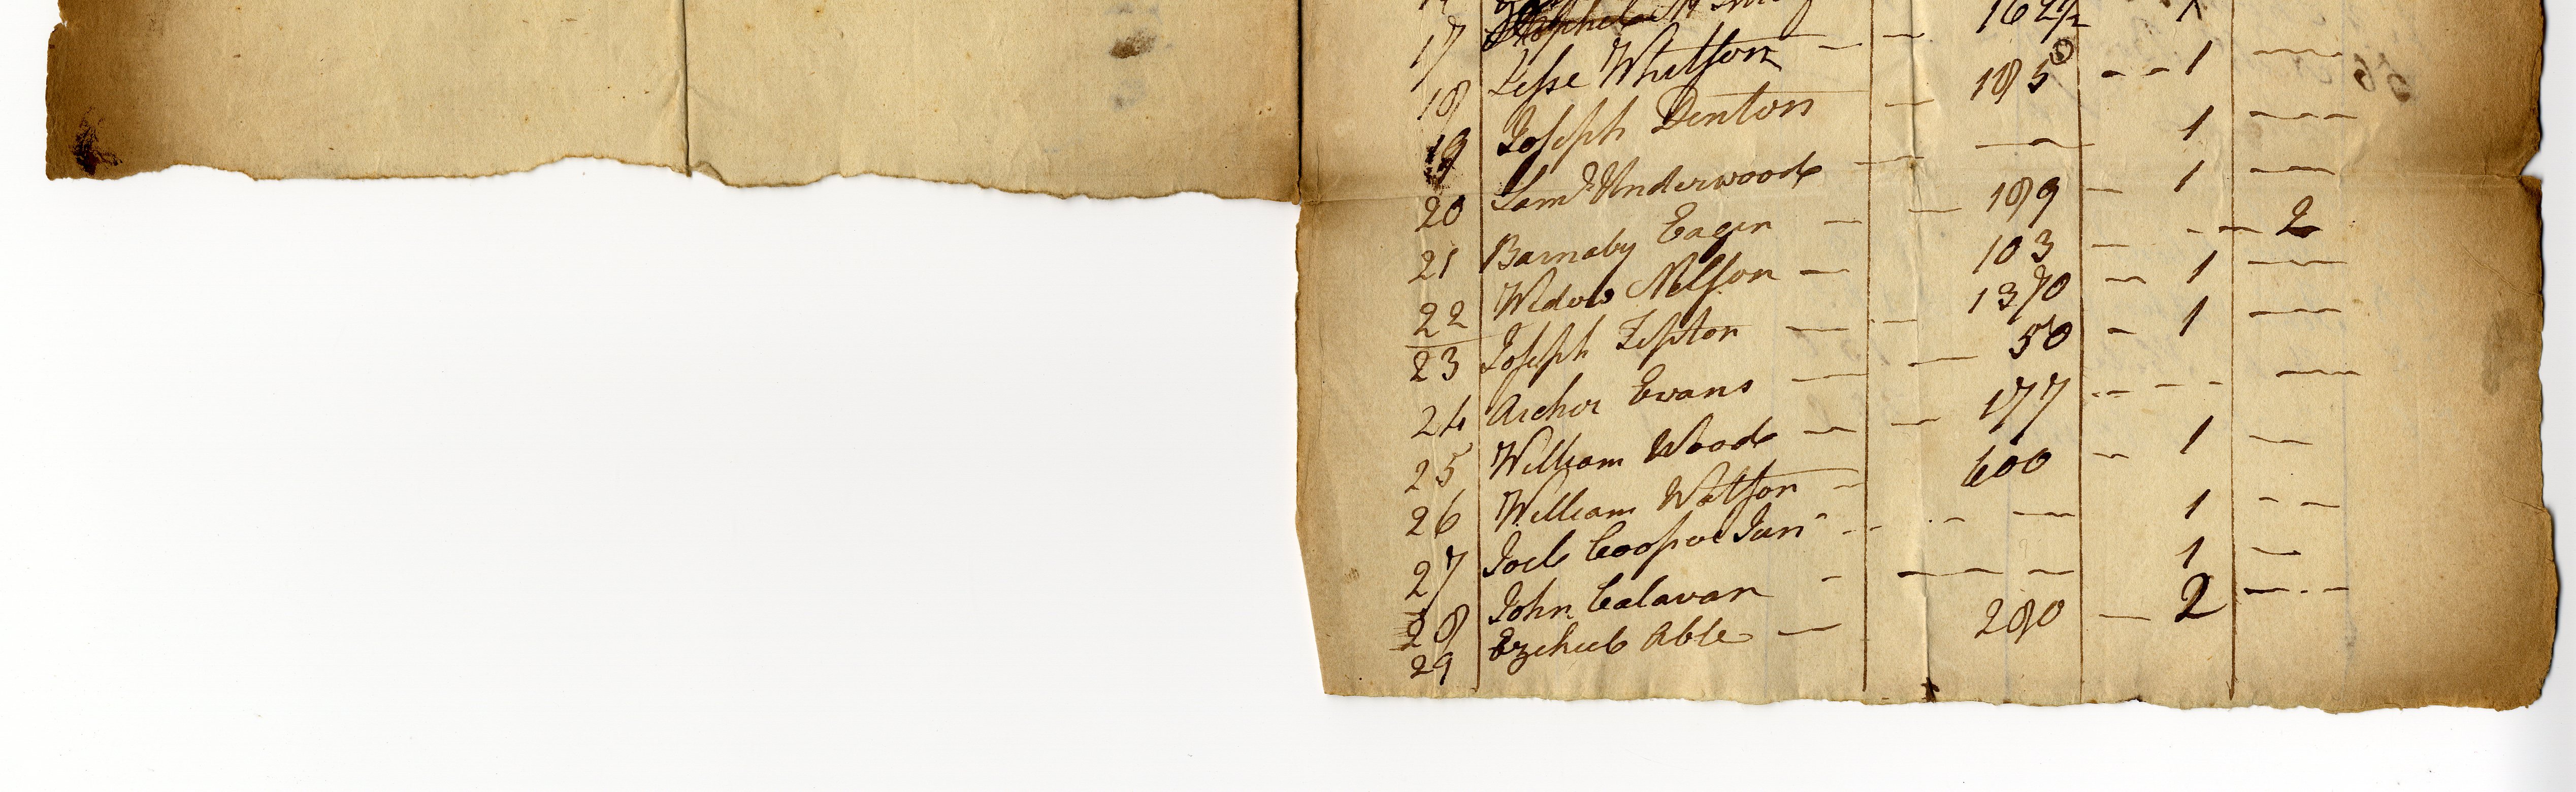 17 162½ 1
18 Jesse Whitson — — 185 - - 1 —
19 Joseph Denton — — 1 — — —
20 Saml Underwood — 189 — 1 —
21 Barnaby Eagen — — 103 — - — 2
22 Widow Nelson — 1370 — 1 —
23 Joseph Tipton — — 50 — 1 —
24 Archer Evans — — 177 - - - —
25 William Wood — — 600 — 1 —
26 William Watson — — 1 - —
27 Joel Cooper Junr — — 1 —
28 John Calavan - — — —
29 Ezekiel Able — 280 — 2 — - -